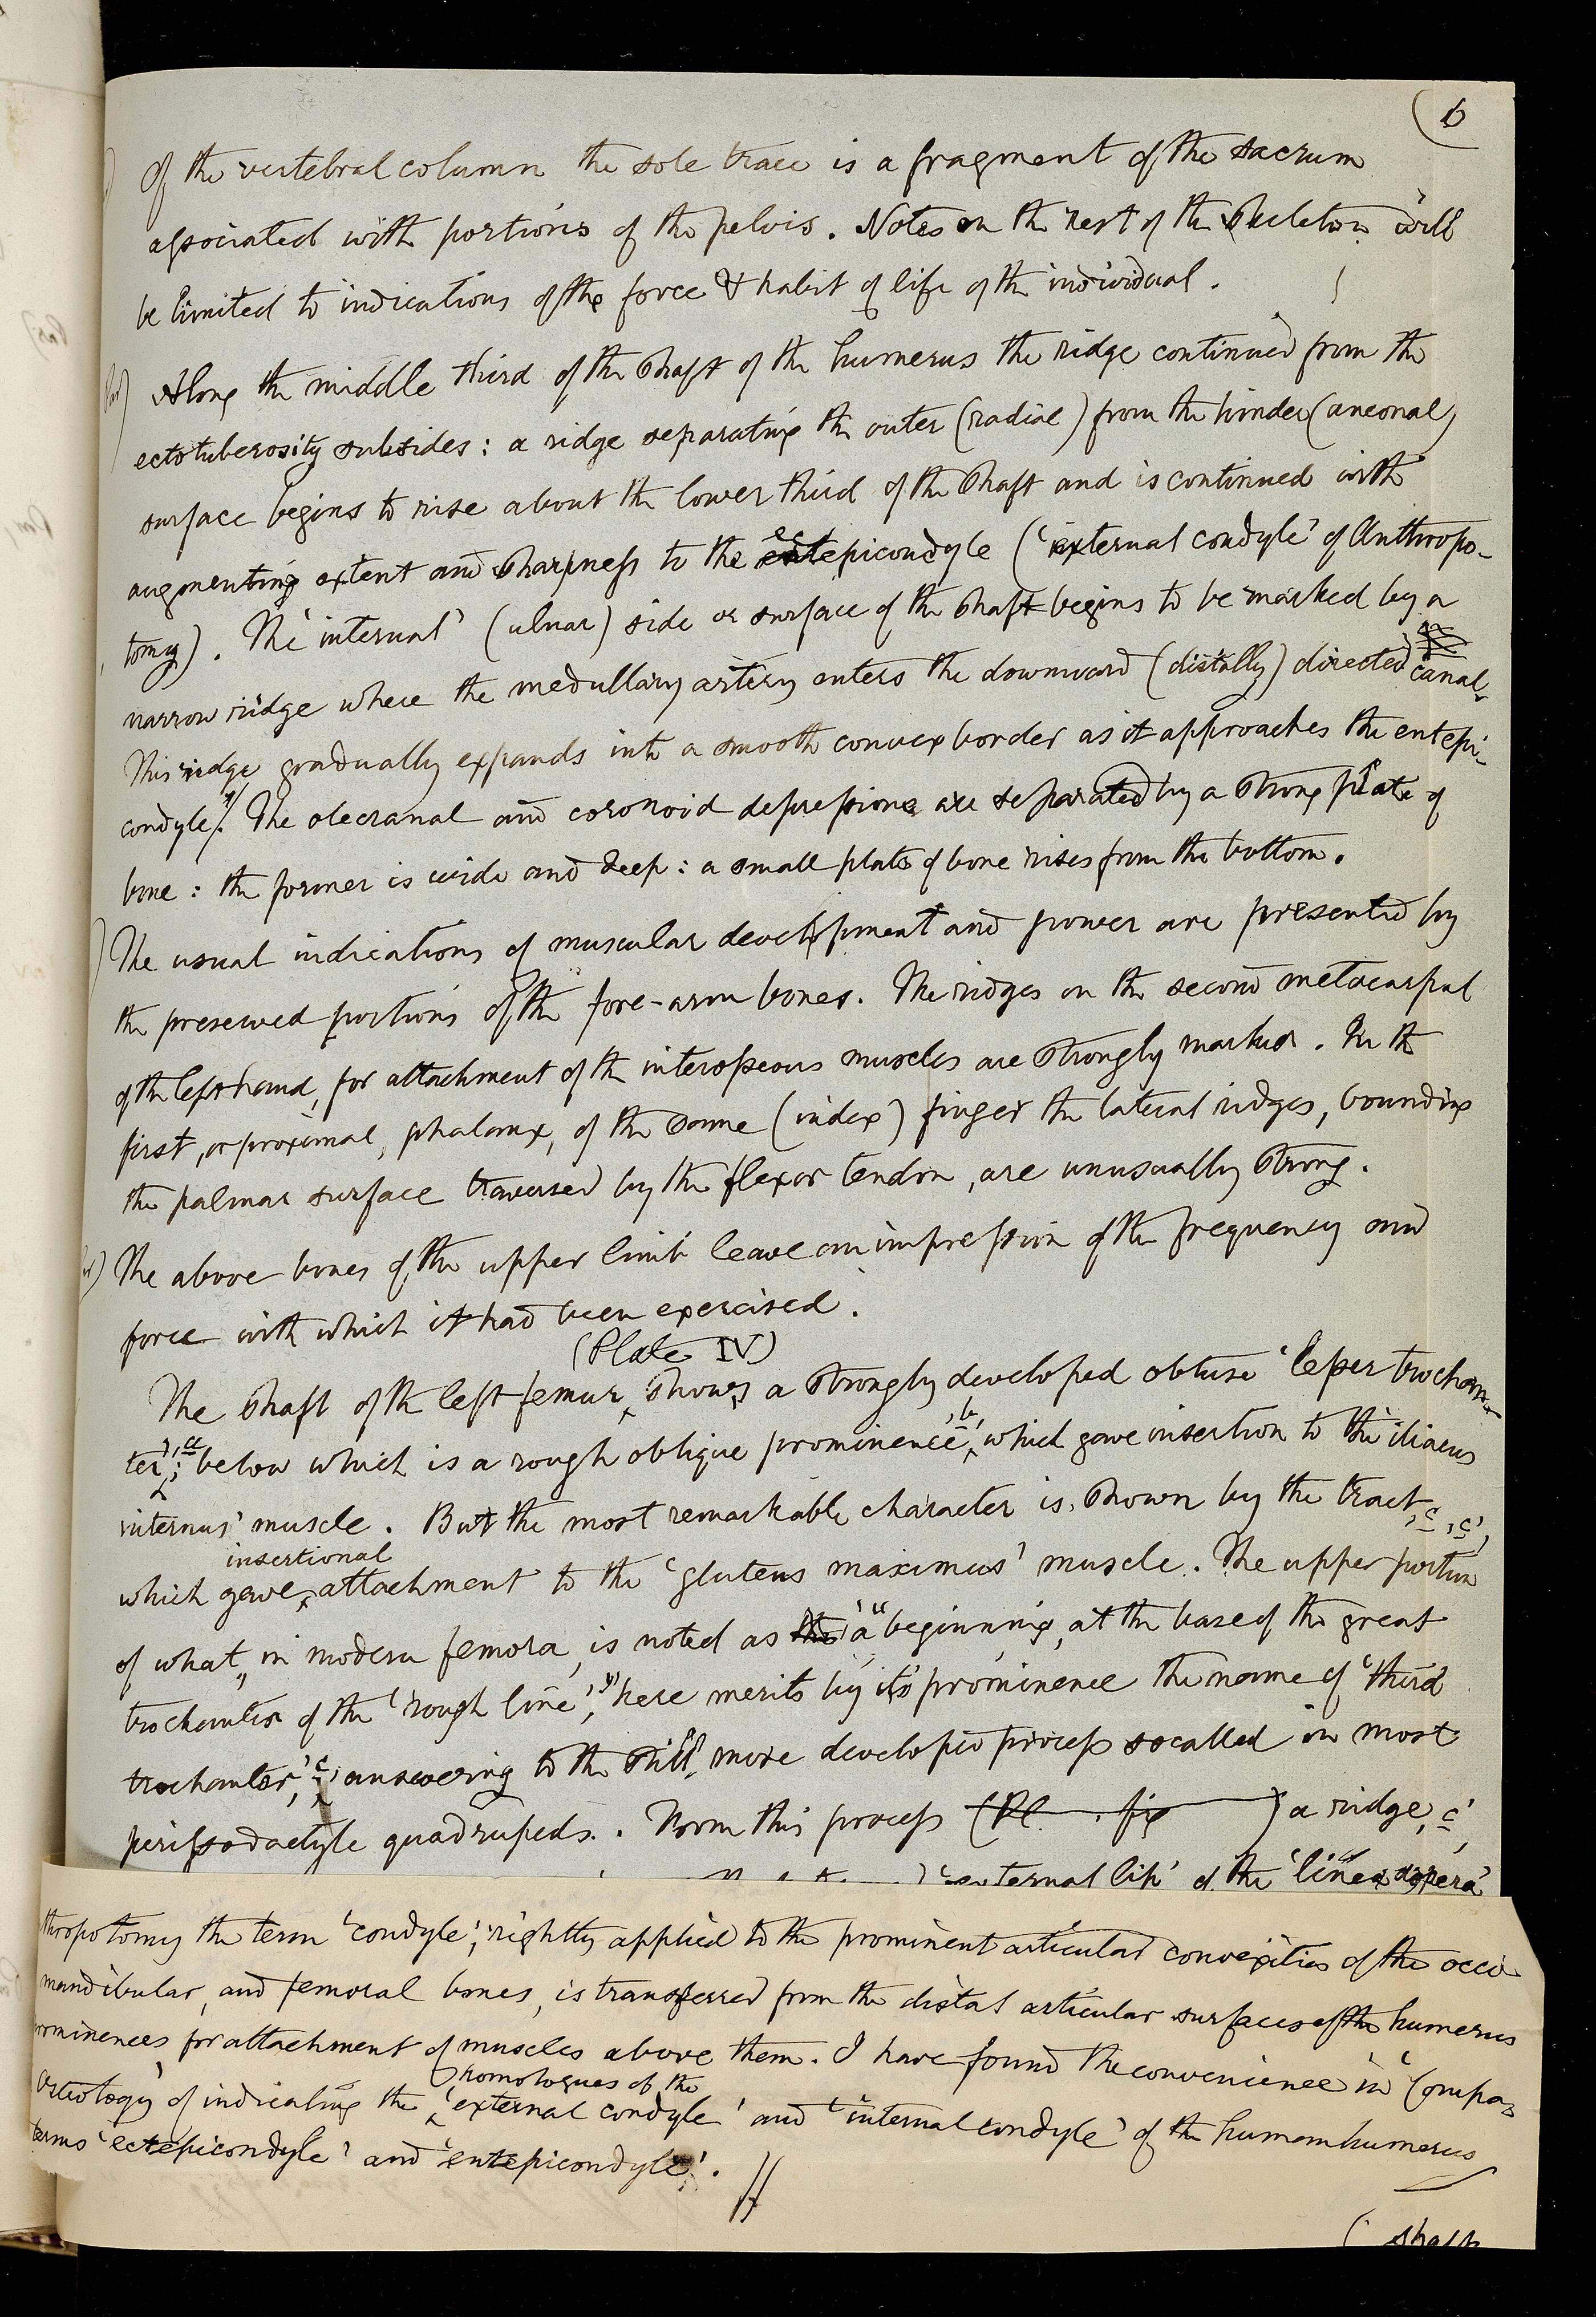 6
Of the vertebral column the sole trace is a fragment of the sacrum
associated with portions of the pelvis. Notes on the rest of the skeleton will
be limited to indications of the force & habit of life of the individual.
Along the middle third of the shaft of the humerus the ridge continued from the
ectotuberosity subsides: a ridge separating the outer (radial) from the hinder (anconal)
surface begins to rise about the lower third of the shaft and is continued with
augmenting extent and sharpness to the ectepicondyle ('external condyle' of Anthropo-
tomy). The 'internal' (ulnar) side or surface of the shaft begins to be marked by a
narrow ridge where the medullary artery enters the downward (distally) directed canal.
This ridge gradually expands into a smooth convex border as it approaches the entepi-
condyle. The olecranal and coronoid depressions are separated by a strong plate of
bone: the former is wide and deep: a small plate of bone rises from the bottom.
The usual indications of muscular development and power are presented by
the preserved portions of the fore-arm bones. The ridges on the second metacarpal
of the left hand, for attachment of the interosseous muscles are strongly marked. In the
first, or proximal, phalanx, of the same (index) finger the lateral ridges, bounding
the palmar surface traversed by the flexor tendon, are unusually strong.
The above bones of the upper limb leave an impression of the frequency and
force with which it had been exercised.
(Plate IV)
The shaft of the left femur, shows a strongly developed obtuse 'lesser trochan-
ter', a; below which is a rough oblique prominence, b, which gave insertion to the 'iliacus
internus' muscle. But the most remarkable character is shown by the tract, c, c',
insertional
which gave attachment to the 'gluteus maximus' muscle. The upper portion
of what, in modern femora, is noted as the "a beginning, at the base of the great
trochanter of the 'rough line'," here merits by its prominence the name of 'third
trochanter', c, answering to the still more developed process so called in most
perissodactyle quadrupeds. From this process (Pl. . fig ) a ridge, c',
'external lip' of the 'linea aspera'
thropotomy the term 'condyle', rightly applied to the prominent articular convexities of the occi
mandibular, and femoral bones, is transferred from the distal articular surfaces of the humerus
rominences for attachment of muscles above them. I have found the convenience in 'Compa
homologues of the
Osteology' of indicating the 'external condyle' and 'internal condyle' of the human humerus
terms 'ectepicondyle' and 'entepicondyle'. //
( shaft